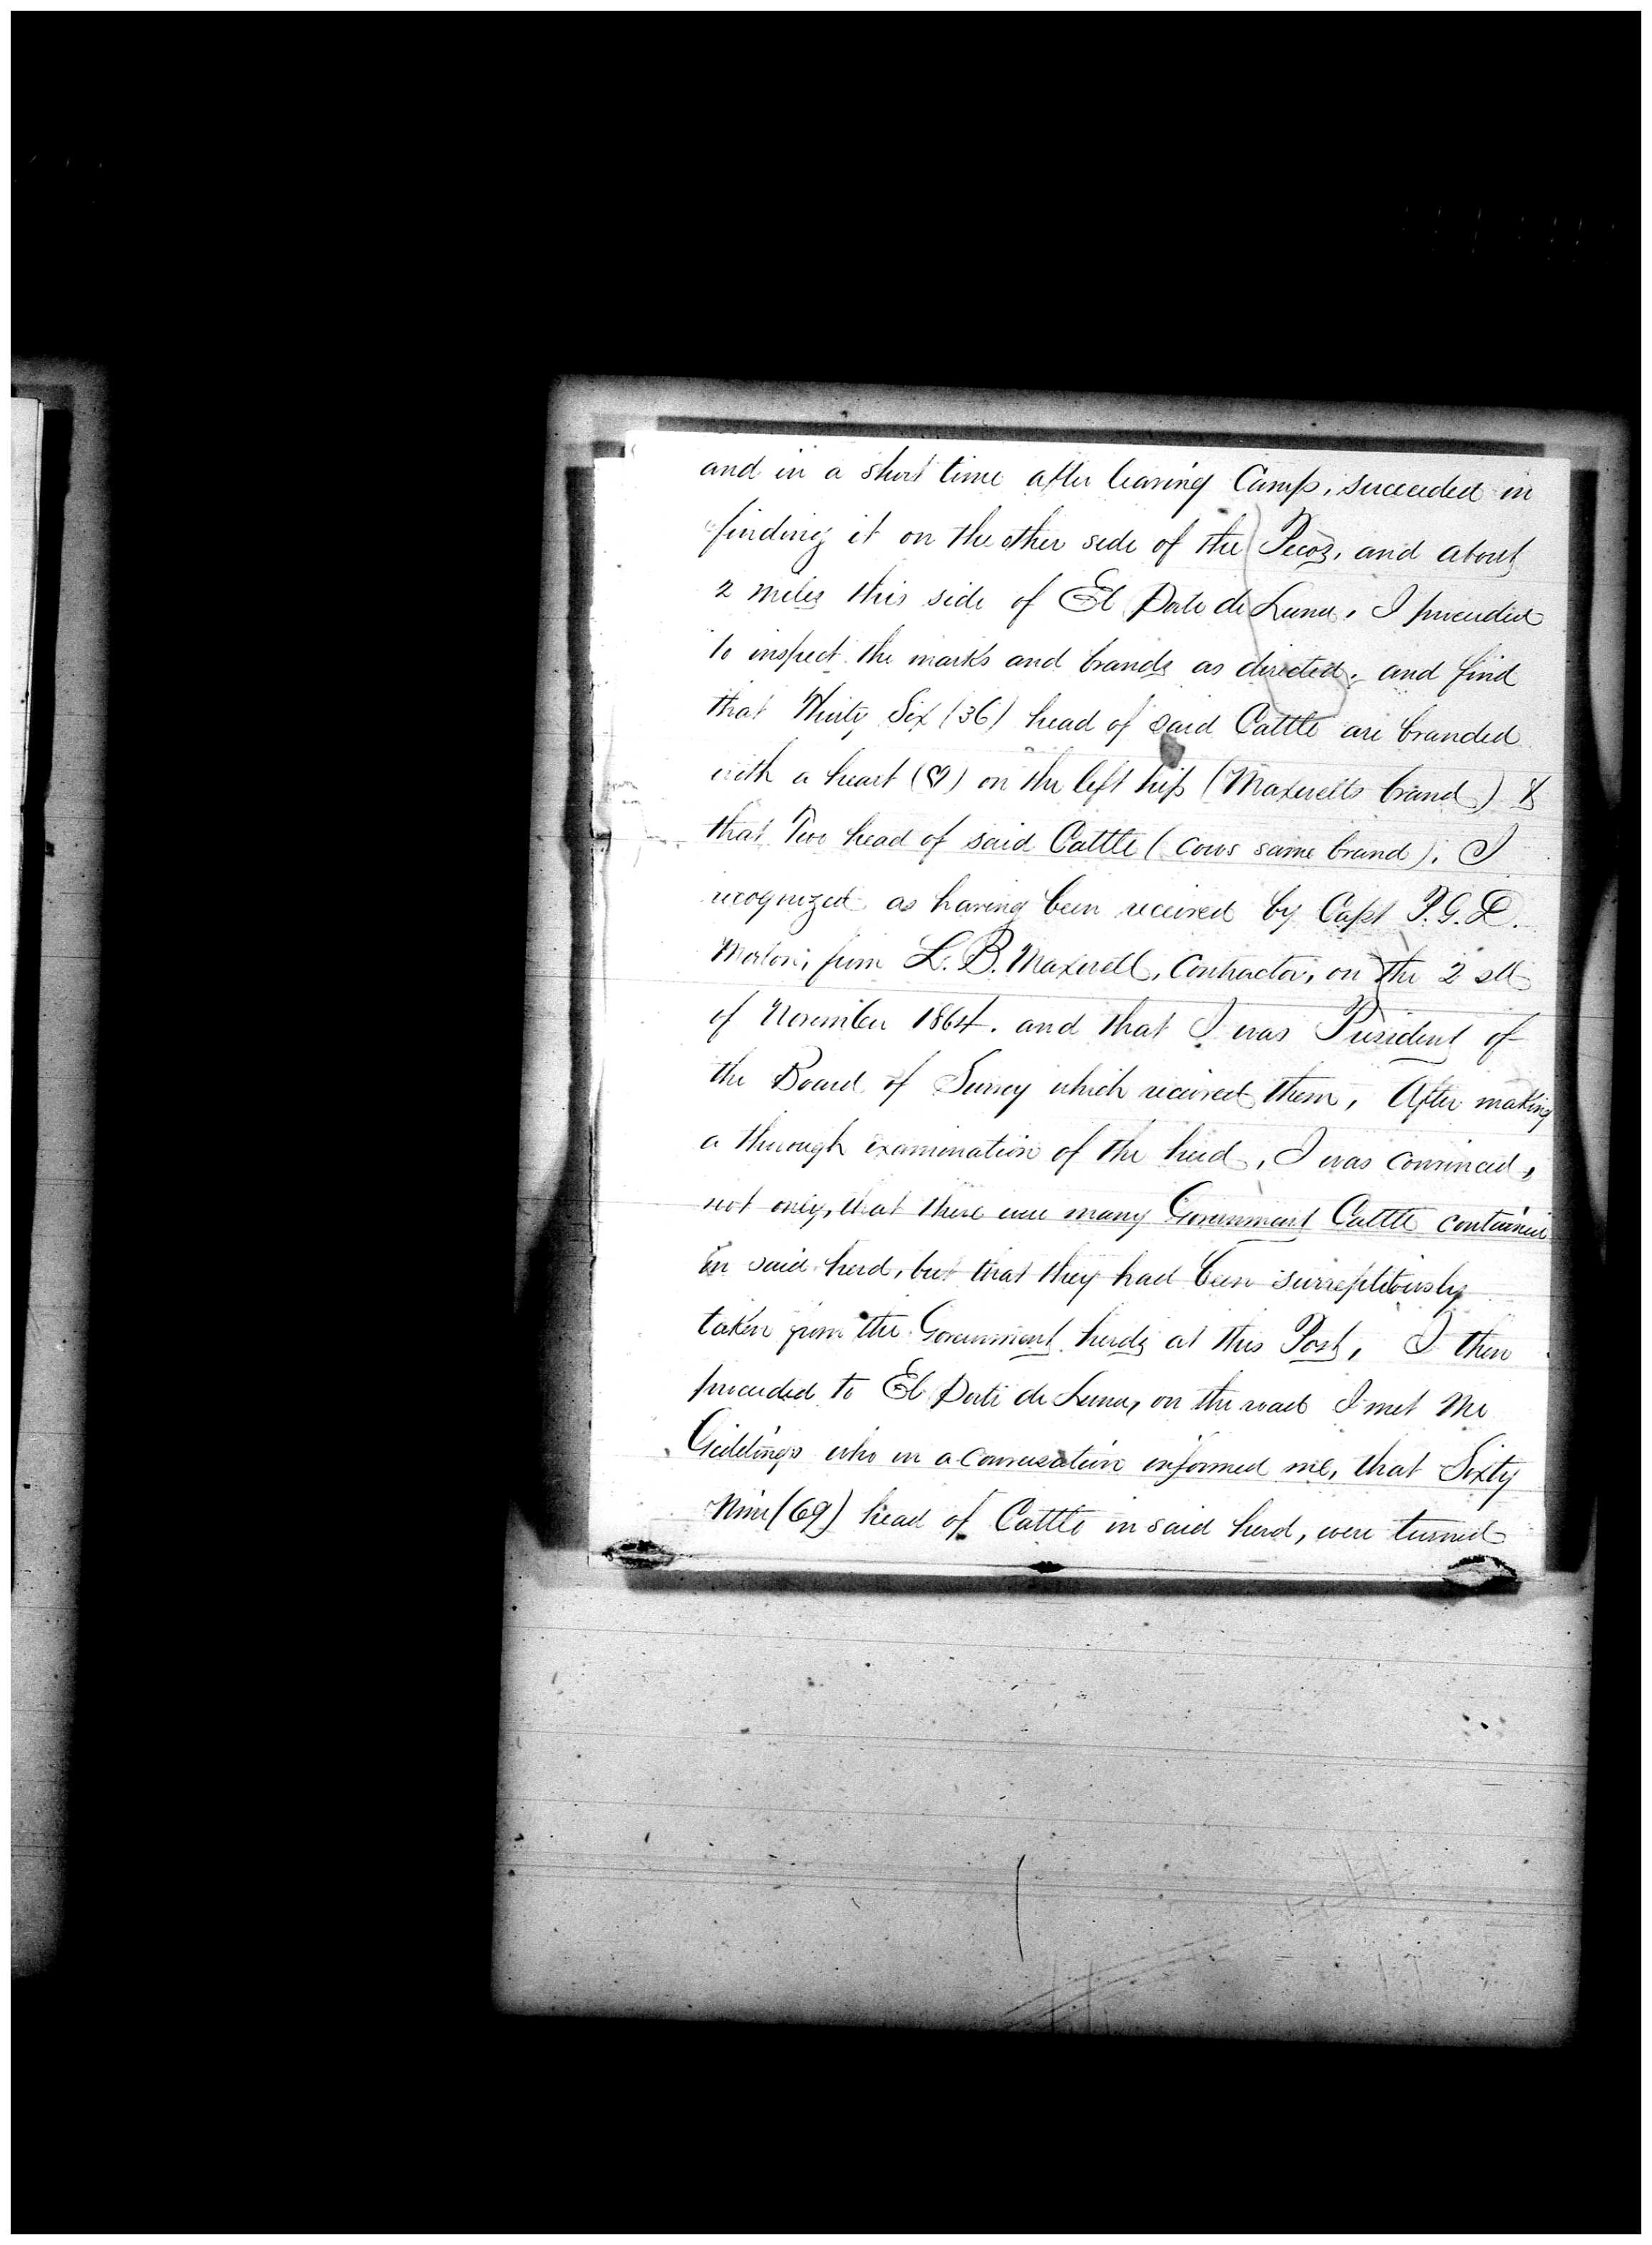 and in a short time after leaving Camp, succeeded in
finding it on the other side of the Pecos, and about
2 miles this side of El Date de Luna, I proceeded
to inspect the marks and brands as directed, and find
that Thirty Six (36) head of said Cattle are branded
with a heart (♡) on the left hip (Maxwells brand) &
that Two head of said Cattle (cows same brand), I
recognized as having been received by Capt P.G.D.
Morton, from L. B. Maxwell, Contractor, on the 2
of November 1864. and that I was President of
the Board of Survey which received them, After making
a thurough examination of the herd, I was convinced,
not only, that there were many Government Cattle contained
in said herd, but that they had been surreptitously
taken from the Government herds at this Post, I then
proceeded to El Date de Luna, on the road I met Mr
Giddings who in a conversation informed me, that Sixty
Nine (69) head of Cattle in said herd, were turned